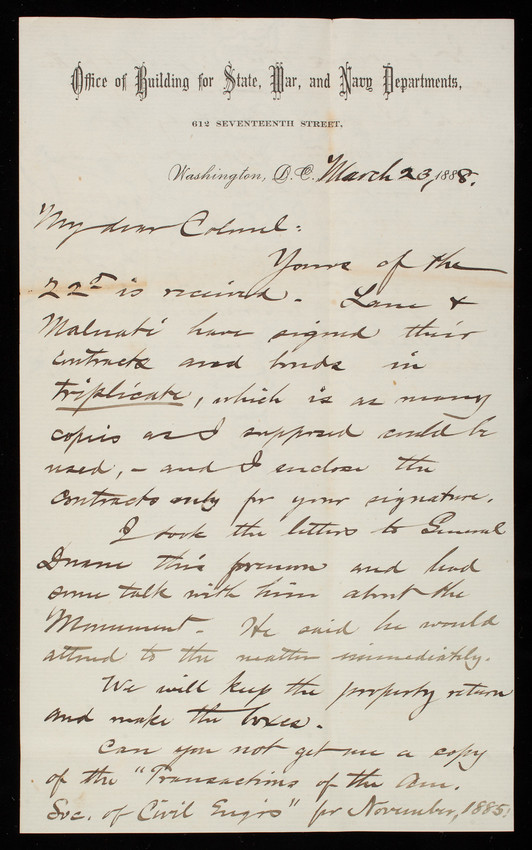 Office of Building for State, War, and Navy Departments,
612 SEVENTEENTH STREET.
Washington, D.C. March 23, 1888.
My dear Colonel:
Yours of the
22d is received. Lane &
Malnati have signed their
contracts and bonds in
triplicate, which is as many
copies as I supposed could be
used, - and I enclose the
contracts only for your signature.
I took the letters to General
Duane this forenoon and had
some talk with him about the
Monument. He said he would
attend to the matter immediately.
We will keep the property return
and make the boxes.
Can you not get me a copy
of the "Transactions of the Am.
Soc. of Civil Engrs" for November, 1885,